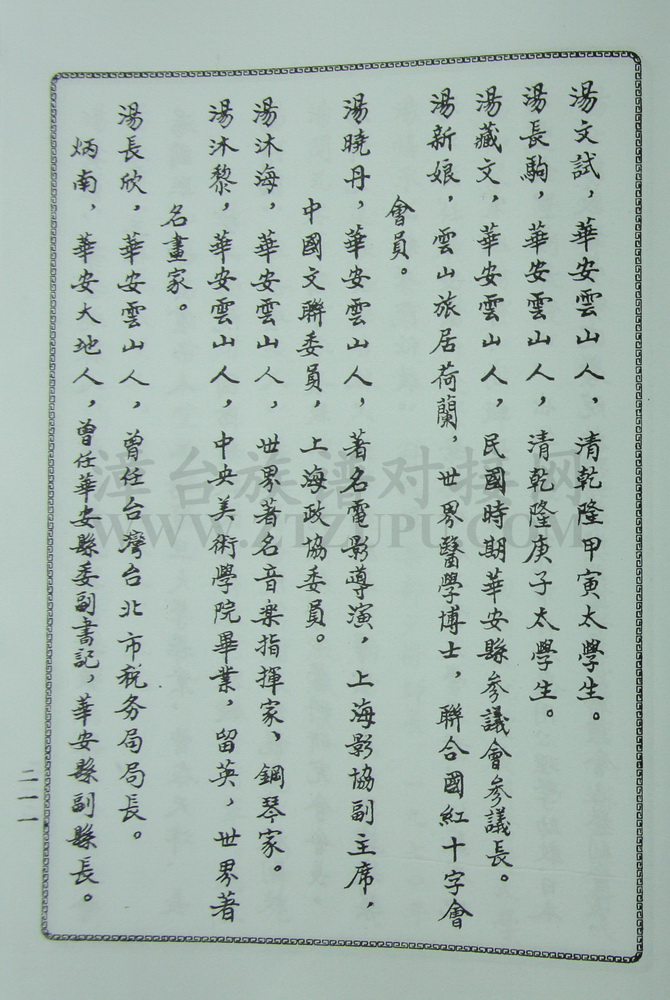 湯文試，華安雲山人，清乾隆甲寅太學生。
湯長駒，華安雲山人，清乾隆庚子太學生。
湯藏文，華安雲山人，民國時期華安縣參議會參議長。
湯新娘，雲山旅居荷蘭，世界醫學博士，聯合國紅十字會
會員。
湯曉丹，華安雲山人，著名電影導演，上海影協副主席，
中國文聯委員，上海政協委員。
湯沐海，華安雲山人，世界著名音樂指揮家、鋼琴家。
湯沐黎，華安雲山人，中央美術學院畢業，留英，世界著
名畫家。
湯長欣，華安雲山人，曾任台灣台北市稅务局局長。
炳南，華安大地人，曾任華安縣委副書記，華安縣副縣長。
二一一
漳台族谱对接网
WWW.ZTZUPU.COM